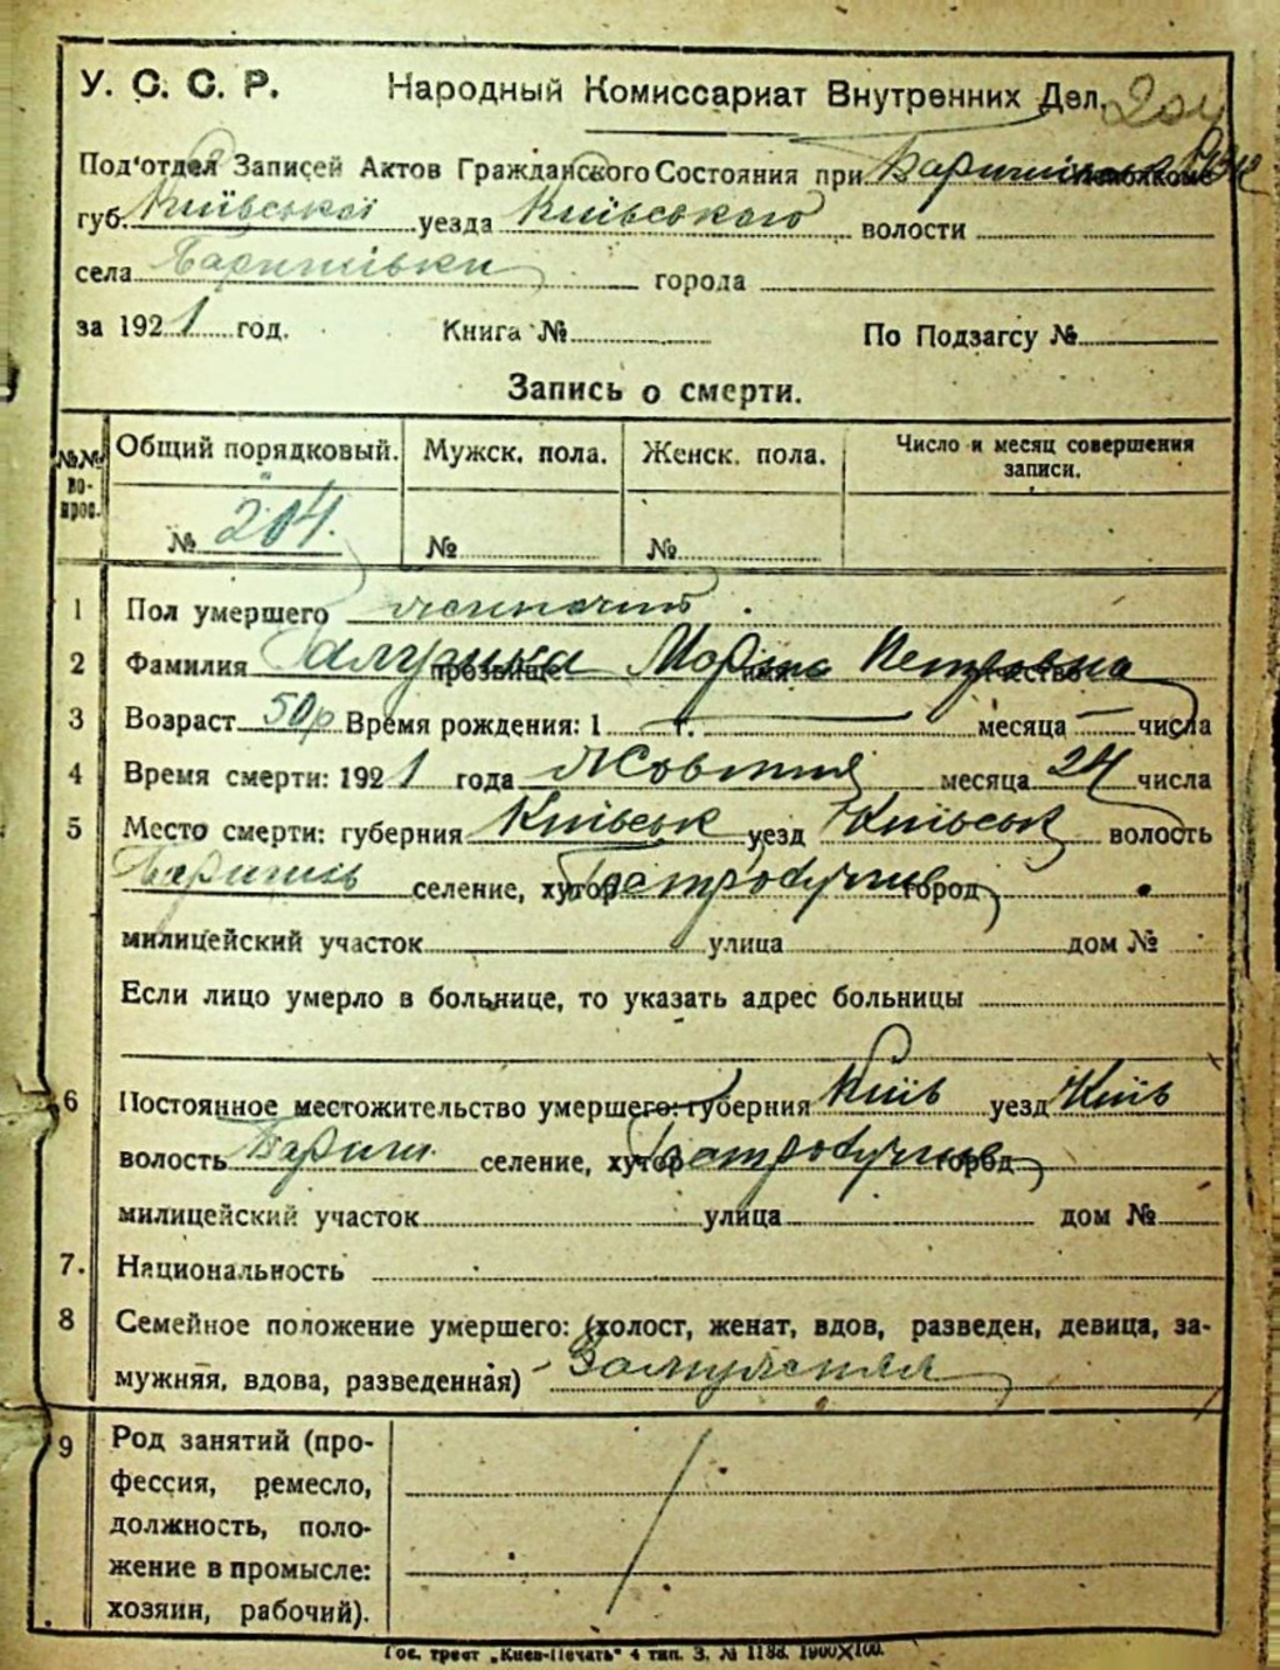 У. С. С. Р. Народный Комиссариат Внутренних Дел. 204
Под'отдел Записей Актов Гражданского Состояния при
губ. Київської уезда Київського волости
села Баришівки города
за 1921 год. Книга № По Подзагсу №
Запись о смерти.
№№ во-прос. Общий порядковый. Мужск. пола. Женск. пола. Число и месяц совершения записи.
№ 204. № №
1 Пол умершего
2 Фамилия прозвище Петровна
3 Возраст 50 р Время рождения: 1 — г. — месяца — числа
4 Время смерти: 1921 года Жовтня месяца 24 числа
5 Место смерти: губерния Київськ уезд Київськ волость
Баришів селение, хутор город
милицейский участок улица дом №
Если лицо умерло в больнице, то указать адрес больницы
6 Постоянное местожительство умершего: губерния Київ уезд Київ
волость Бариш. селение, хутор город
милицейский участок улица дом №
7. Национальность
8 Семейное положение умершего: (холост, женат, вдов, разведен, девица, за-
мужняя, вдова, разведенная) - Замужняя
9 Род занятий (про-
фессия, ремесло,
должность, поло-
жение в промысле:
хозяин, рабочий).
Гос. трест „Киев-Печать" 4 тип. З. № 1188. 1900X100.